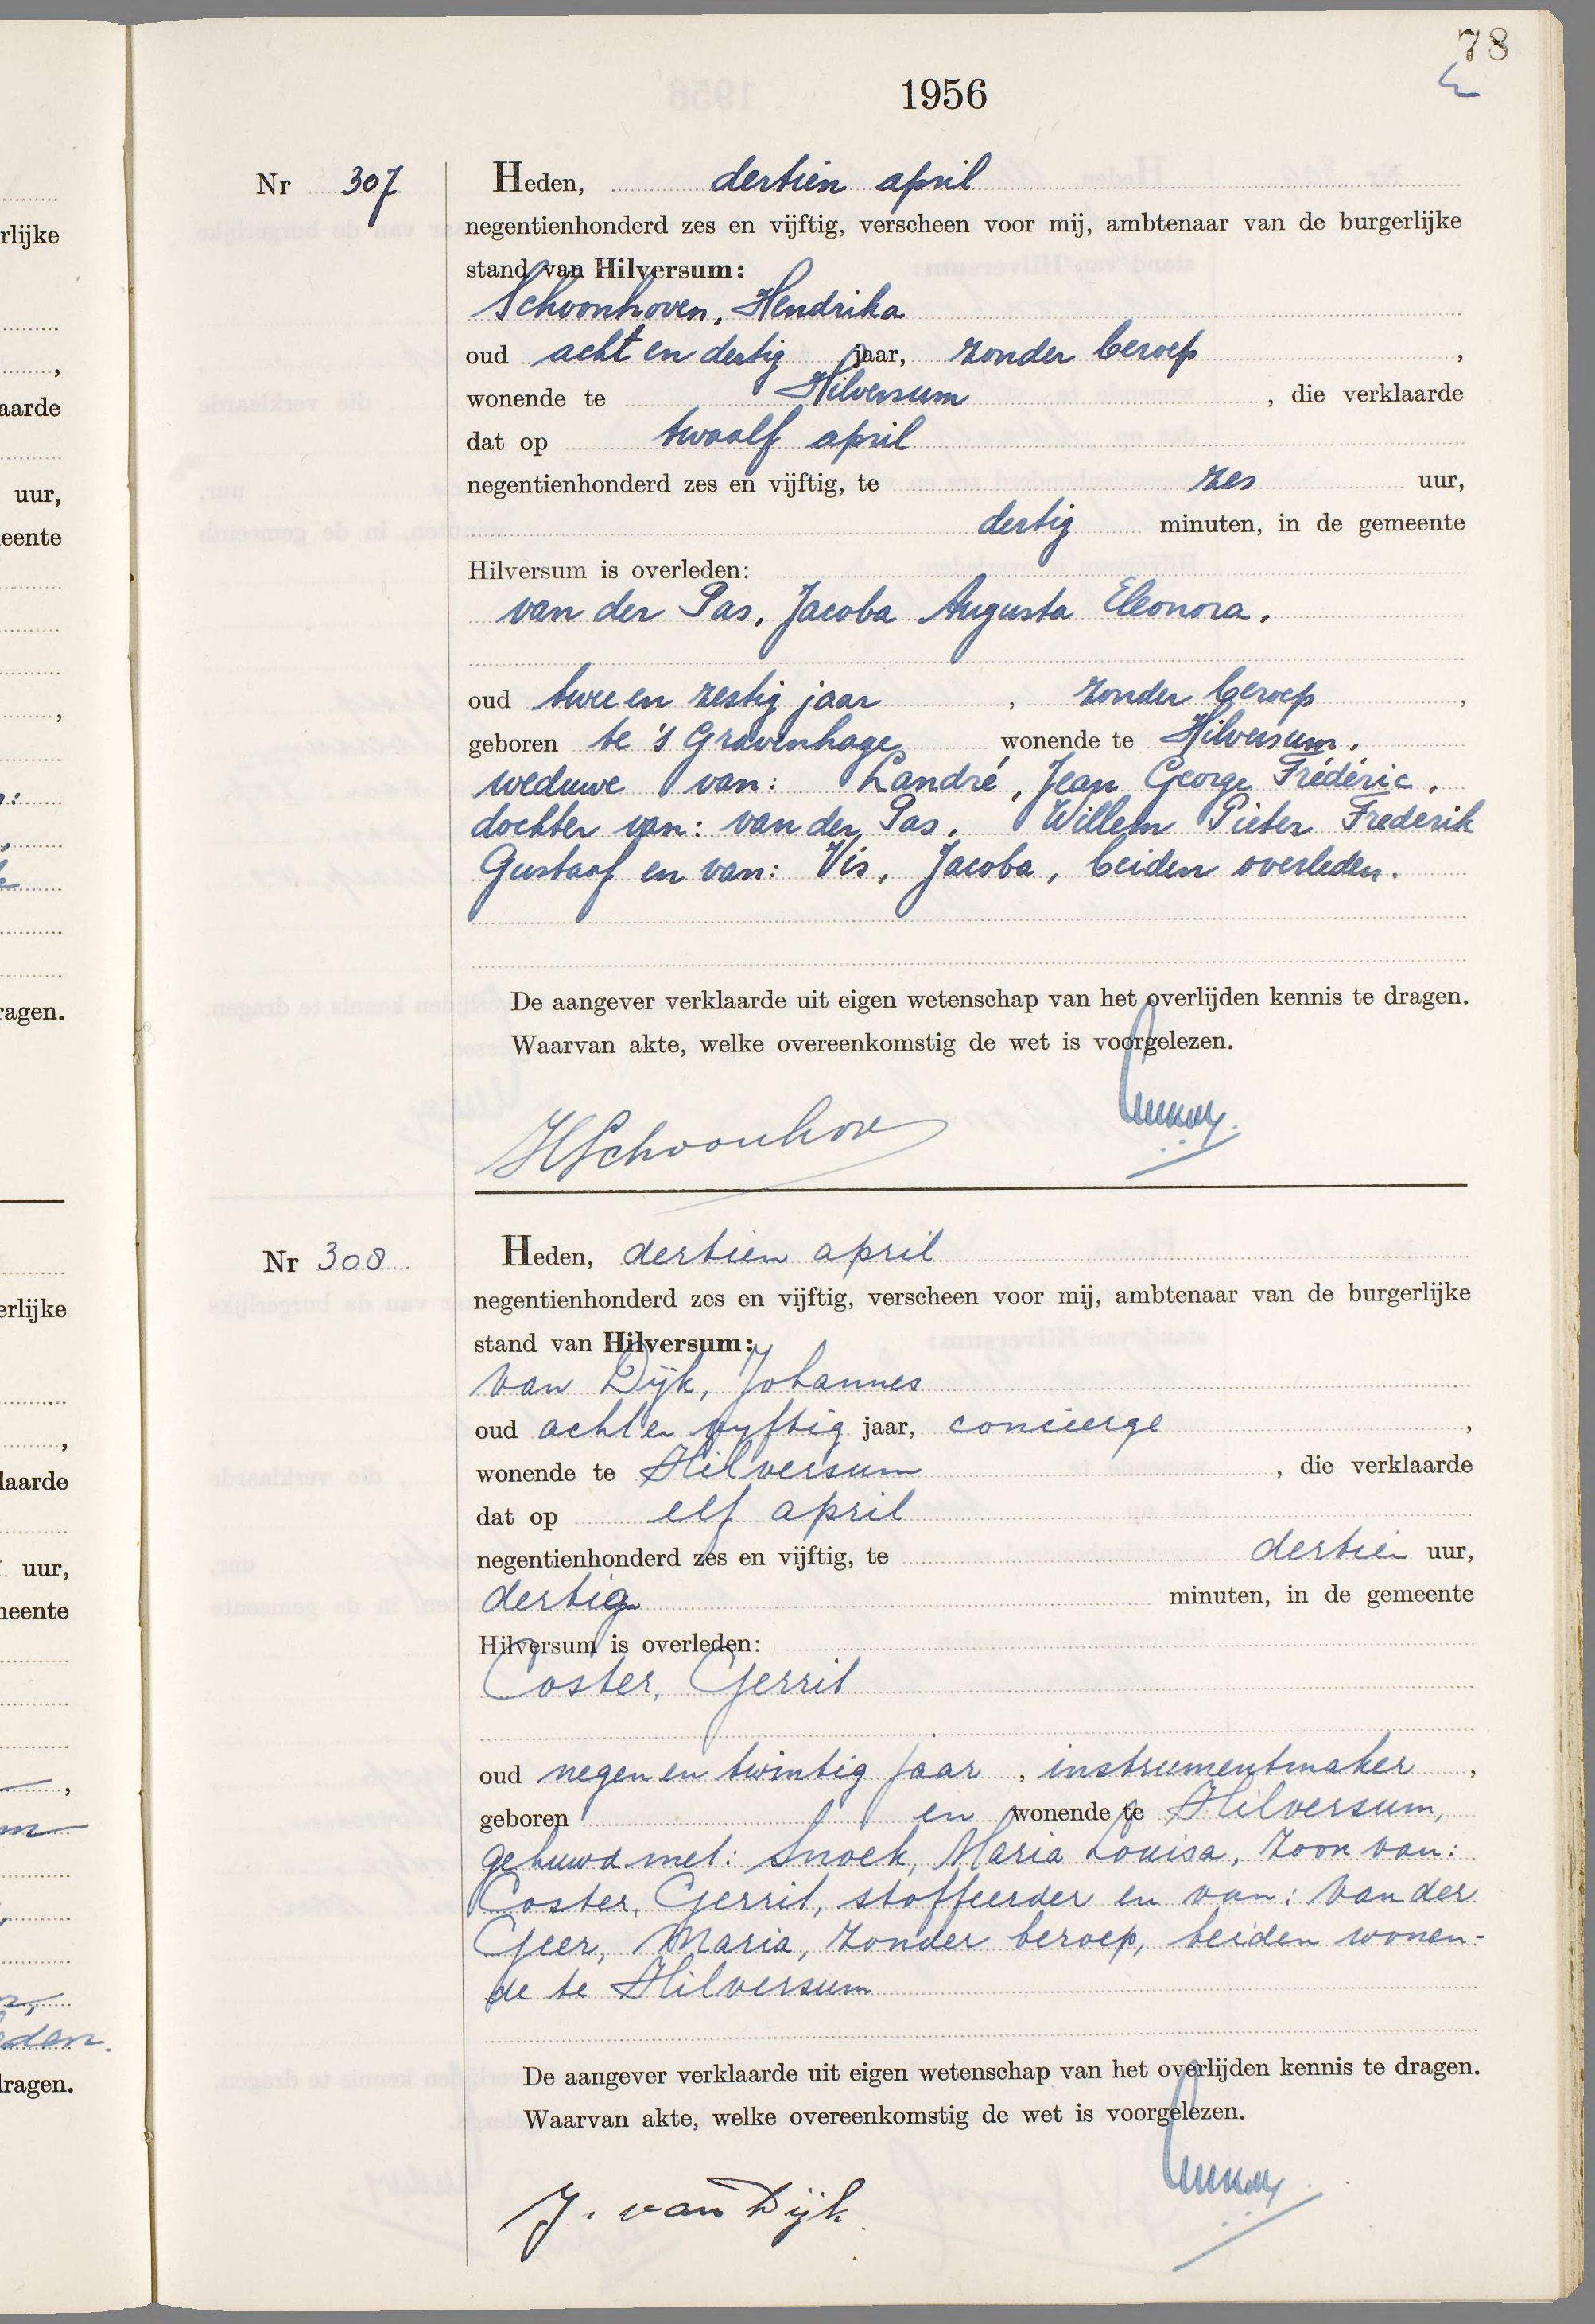 78
1956
Nr 307
Heden, dertien april
negentienhonderd zes en vijftig, verscheen voor mij, ambtenaar van de burgerlijke
stand van Hilversum:
Schoonhoven, Hendrika
oud acht en dertig jaar, zonder beroep ,
wonende te Hilversum , die verklaarde
dat op twaalf april
negentienhonderd zes en vijftig, te zes uur,
dertig minuten, in de gemeente
Hilversum is overleden:
van der Pas, Jacoba Augusta Eleonora.
oud twee en zestig jaar , zonder beroep ,
geboren te 's Gravenhage wonende te Hilversum,
weduwe van: Landré, Jean George Frédéric,
dochter van: van der Pas, Willem Pieter Frederik
Gustaaf en van: Vis, Jacoba, beiden overleden.
De aangever verklaarde uit eigen wetenschap van het overlijden kennis te dragen.
Waarvan akte, welke overeenkomstig de wet is voorgelezen.
HSchoonhov
Nr 308
Heden, dertien april
negentienhonderd zes en vijftig, verscheen voor mij, ambtenaar van de burgerlijke
stand van Hilversum:
van Dijk, Johannes
oud acht en vijftig jaar, concierge ,
wonende te Hilversum , die verklaarde
dat op elf april
negentienhonderd zes en vijftig, te dertien uur,
dertig minuten, in de gemeente
Hilversum is overleden:
Coster, Gerrit
oud negen en twintig jaar , instrumentmaker ,
geboren en wonende te Hilversum,
gehuwd met: Snoek, Maria Louisa, zoon van:
Coster, Gerrit, stoffeerder en van: van der
Geer, Maria, zonder beroep, beiden wonen-
de te Hilversum
De aangever verklaarde uit eigen wetenschap van het overlijden kennis te dragen.
Waarvan akte, welke overeenkomstig de wet is voorgelezen.
J. van Dijk